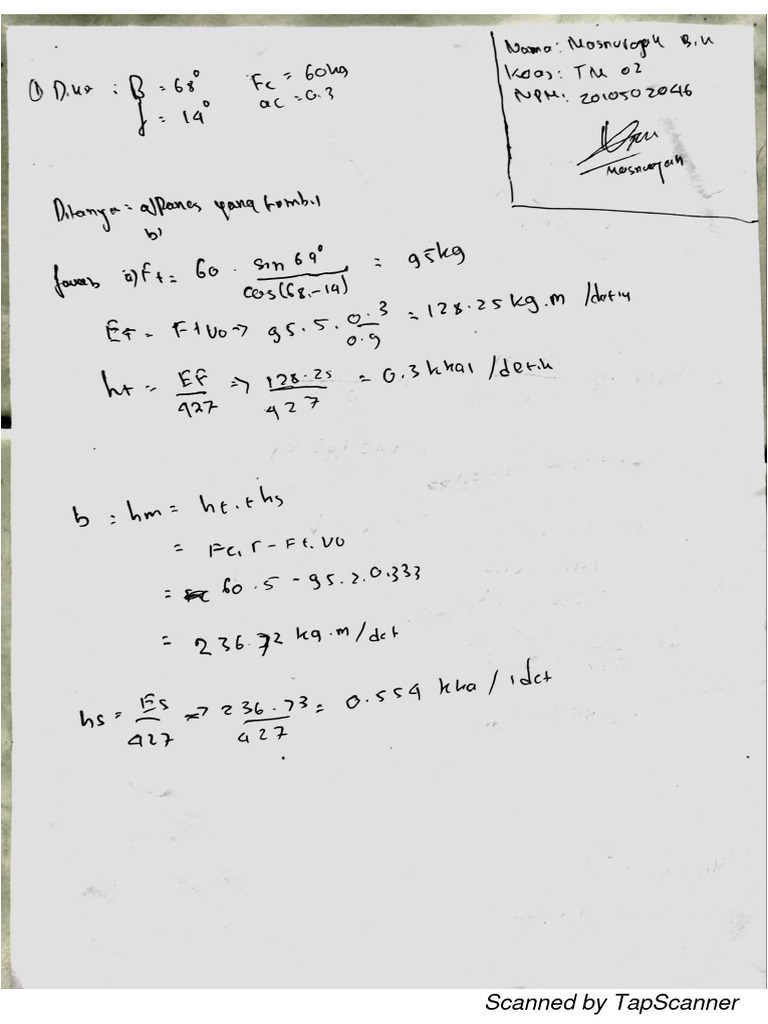 Nama: Masnurayah B.H
Kelas: TM 02
NPM: 2010502046
Masnurayah
① Dik : B = 68° Fc = 60 kg
γ = 14° ac = 0.3
Ditanya = a) Panas yang timbul
b)
Jawab a) Ft = 60 . sin 69° / cos(68.-14) = 95 kg
Ef = F + Vo → 95.5. 0.3 / 0.9 = 128.25 kg.m /detik
ht = EF / 427 => 128.25 / 427 = 0.3 kkal /detik
b = hm = ht. + hs
= Fc. r - Ft. Vo
= 60 . 5 - 95. 2. 0.333
= 236.72 kg.m/det
hs = Es / 427 => 236.73 / 427 = 0.554 kka / 1 det
Scanned by TapScanner